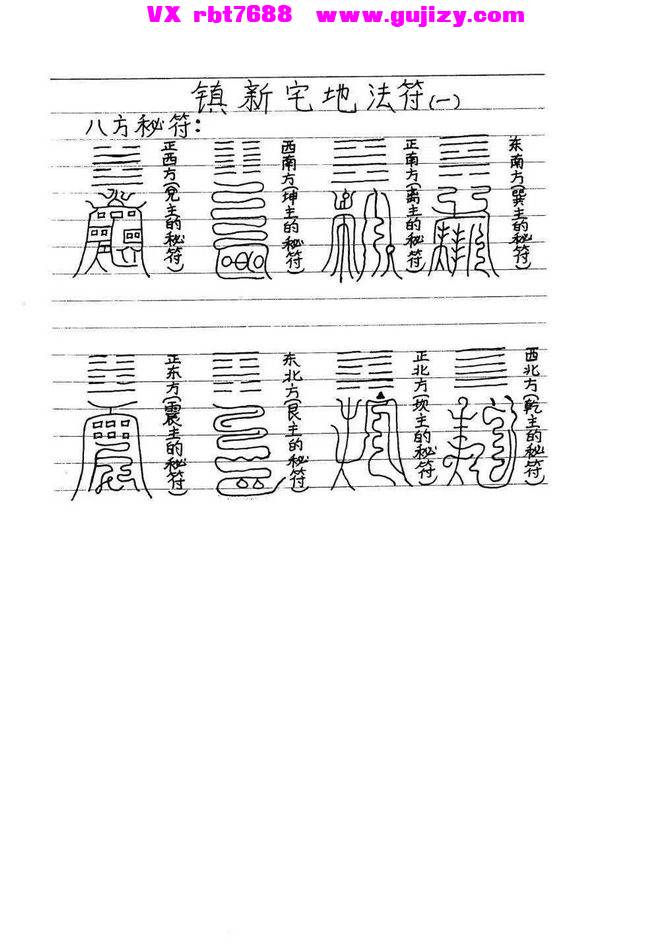 VX rbt7688 www.gujizy.com
镇新宅地法符(一)
八方秘符:
正西方(兑主的秘符)
西南方(坤主的秘符)
正南方(离主的秘符)
东南方(巽主的秘符)
正东方(震主的秘符)
东北方(艮主的秘符)
正北方(坎主的秘符)
西北方(乾主的秘符)